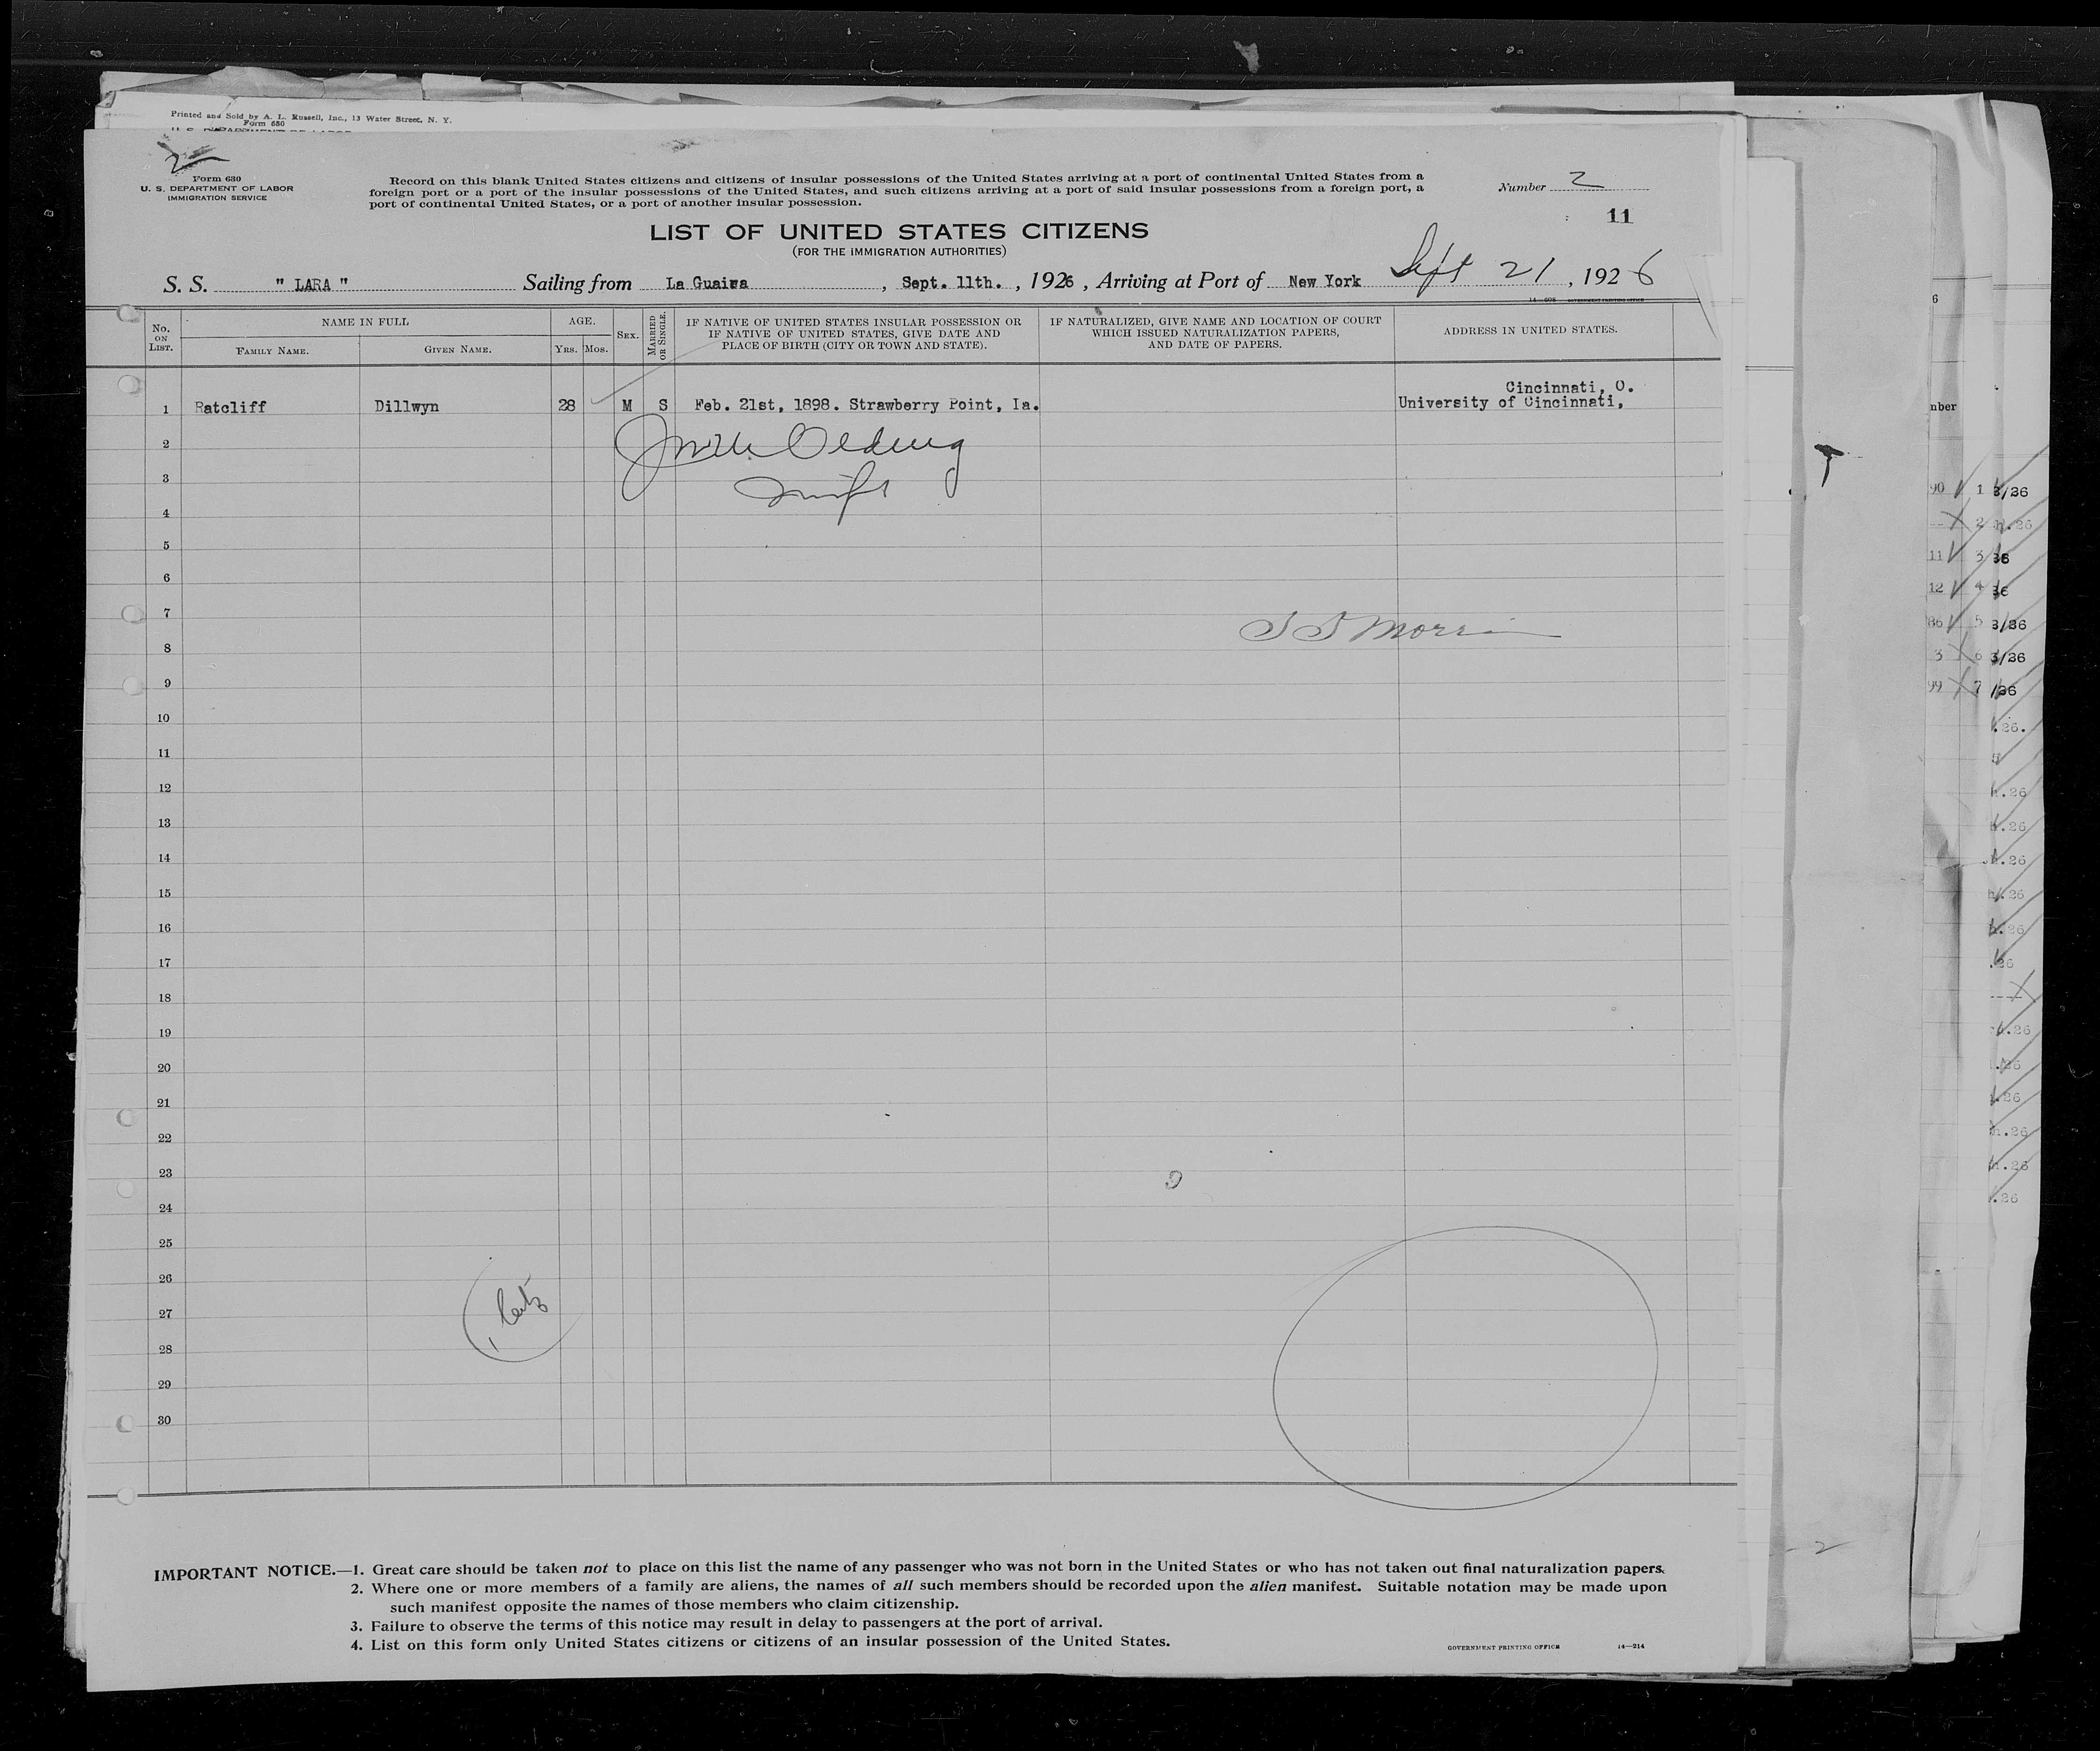 Printed and Sold by A. L. Russell, Inc., 13 Water Street, N. Y.
Form 630
2
Form 630
U. S. DEPARTMENT OF LABOR
IMMIGRATION SERVICE
Record on this blank United States citizens and citizens of insular possessions of the United States arriving at a port of continental United States from a
foreign port or a port of the insular possessions of the United States, and such citizens arriving at a port of said insular possessions from a foreign port, a
port of continental United States, or a port of another insular possession.
Number 2
11
LIST OF UNITED STATES CITIZENS
(FOR THE IMMIGRATION AUTHORITIES)
S. S. " LARA " Sailing from La Guaira, Sept. 11th., 1926, Arriving at Port of New York Sept 21, 1926
No. ON LIST.
NAME IN FULL
FAMILY NAME.
GIVEN NAME.
AGE.
YRS. MOS.
SEX.
MARRIED OR SINGLE.
IF NATIVE OF UNITED STATES INSULAR POSSESSION OR
IF NATIVE OF UNITED STATES, GIVE DATE AND
PLACE OF BIRTH (CITY OR TOWN AND STATE).
IF NATURALIZED, GIVE NAME AND LOCATION OF COURT
WHICH ISSUED NATURALIZATION PAPERS,
AND DATE OF PAPERS.
ADDRESS IN UNITED STATES.
Cincinnati, O.
1 Ratcliff Dillwyn 28 M S Feb. 21st, 1898. Strawberry Point, Ia. University of Cincinnati,
2
3
4
5
6
7
S S Morris
8
9
10
11
12
13
14
15
16
17
18
19
20
21
22
23
24
25
26
27
28
29
30
IMPORTANT NOTICE.—1. Great care should be taken not to place on this list the name of any passenger who was not born in the United States or who has not taken out final naturalization papers.
2. Where one or more members of a family are aliens, the names of all such members should be recorded upon the alien manifest. Suitable notation may be made upon
such manifest opposite the names of those members who claim citizenship.
3. Failure to observe the terms of this notice may result in delay to passengers at the port of arrival.
4. List on this form only United States citizens or citizens of an insular possession of the United States.
GOVERNMENT PRINTING OFFICE 14—214